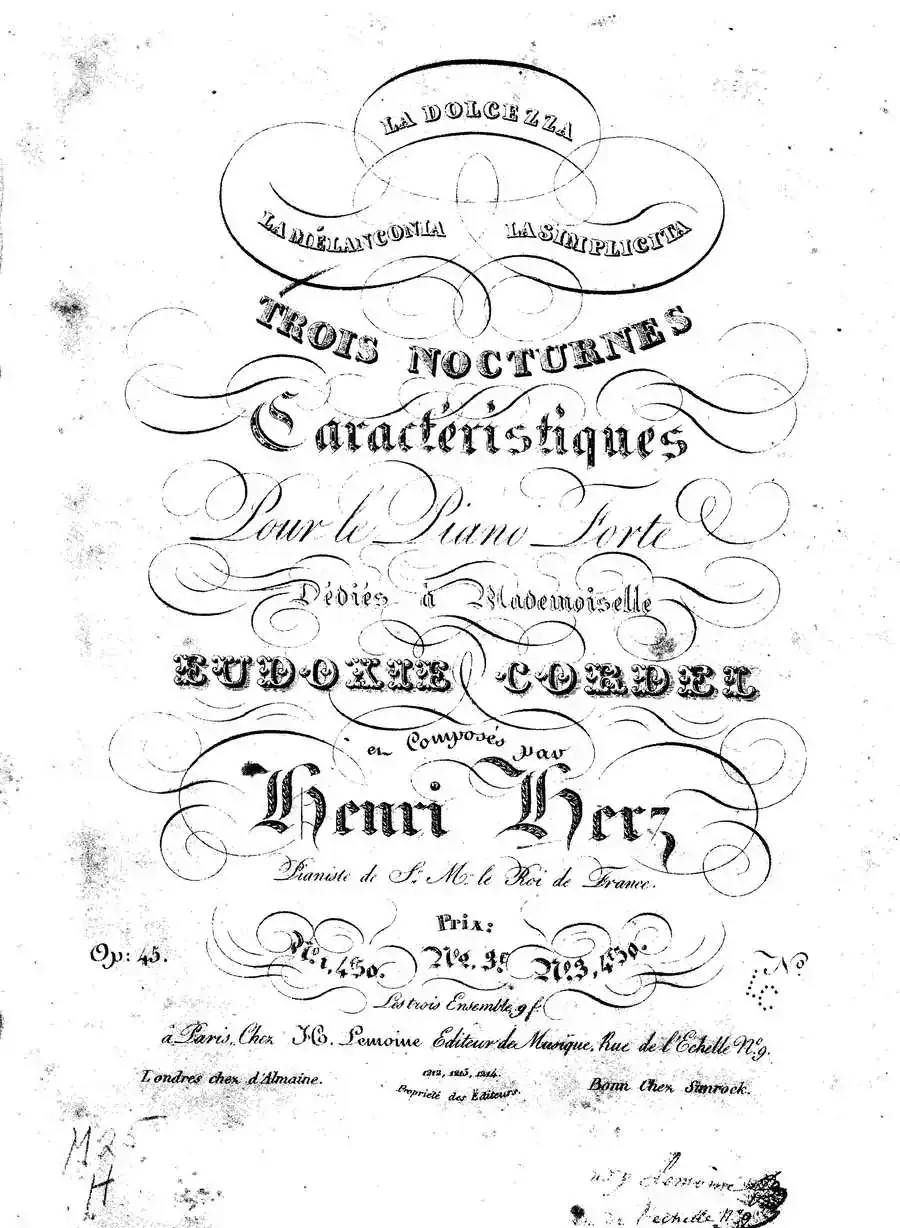 LA DOLCEZZA
LA MÉLANCONIA
LA SIMPLICITA
TROIS NOCTURNES
Caractéristiques
Pour le Piano Forte
Dédiés à Mademoiselle
EUDOXIE CORDEL
et Composés par
Henri Herz
Pianiste de S. M. le Roi de France.
Prix:
Op: 45.
Nº 1, 4f50. Nº 2. 3f Nº 3, 4f50.
Nº
Les trois Ensemble, 9 f.
à Paris, Chez H. Lemoine Editeur de Musique, Rue de l'Echelle Nº 9.
Londres chez d'Almaine.
1212, 1213, 1214.
Propriété des Éditeurs.
Bonn Chez Simrock.
M25
H
Lemoine
l'echelle Nº 9